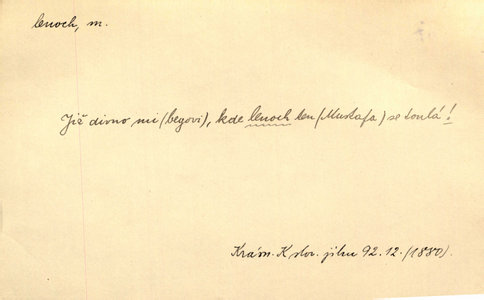 lenoch, m.
Již divno mi (begovi), kde lenoch ten (Mustafa) se toulá!
Krám. K slov. jihu 92.12. (1880).